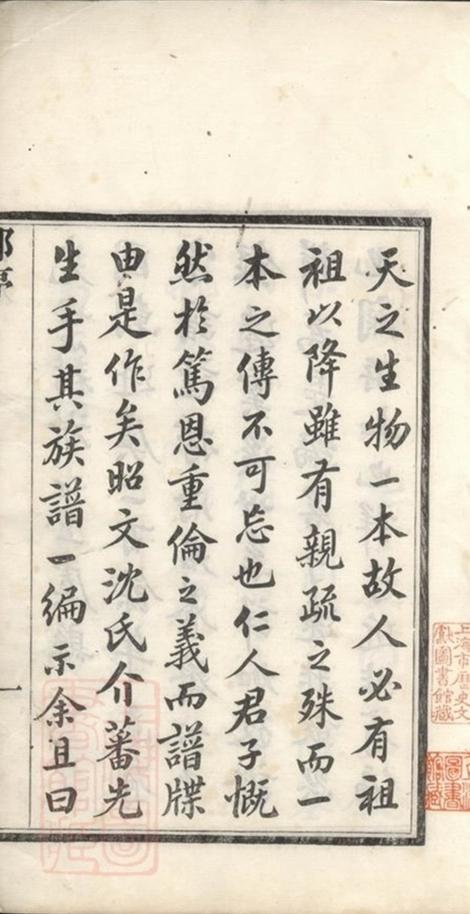 天之生物一本故人必有祖
祖以降雖有親疏之殊而一
本之傳不可忘也仁人君子慨
然於篤恩重倫之義而譜牒
由是作矣昭文沈氏介蕃先
生手其族譜一編示余且曰
一
上海市歷史文
獻圖書館藏